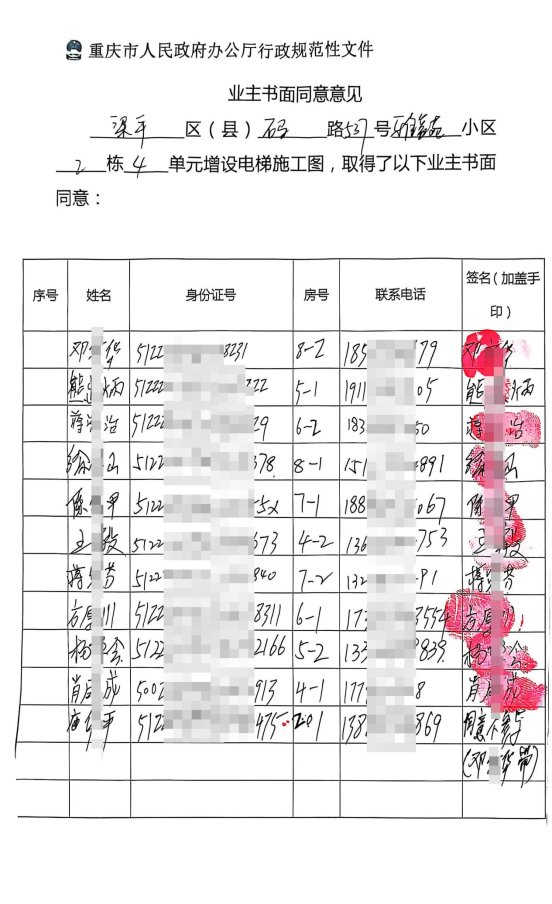 重庆市人民政府办公厅行政规范性文件
业主书面同意意见
梁平 区（县） 石马 路537号 小区
2 栋 4 单元增设电梯施工图，取得了以下业主书面
同意：
序号 姓名 身份证号 房号 联系电话 签名（加盖手印）
邓 华 5122 8231 8-2 185 179 邓 华
熊 炳 51222 222 5-1 1911 05 熊 炳
蒋 浩 5122 29 6-2 183 50 蒋 浩
徐 5122 378 8-1 151 4891 徐
陈 甲 5122 5x 7-1 188 067 陈 甲
王 毅 5122 573 4-2 136 753 王 毅
蒋 芬 5122 840 7-2 132 91 蒋 芬
方 川 5122 8311 6-1 173 3554 方 川
杨 5122 2166 5-2 133 839 杨
肖 成 5002 913 4-1 177 8 肖 成
平 5122 475 201 138 869 同意
（邓 华 ）